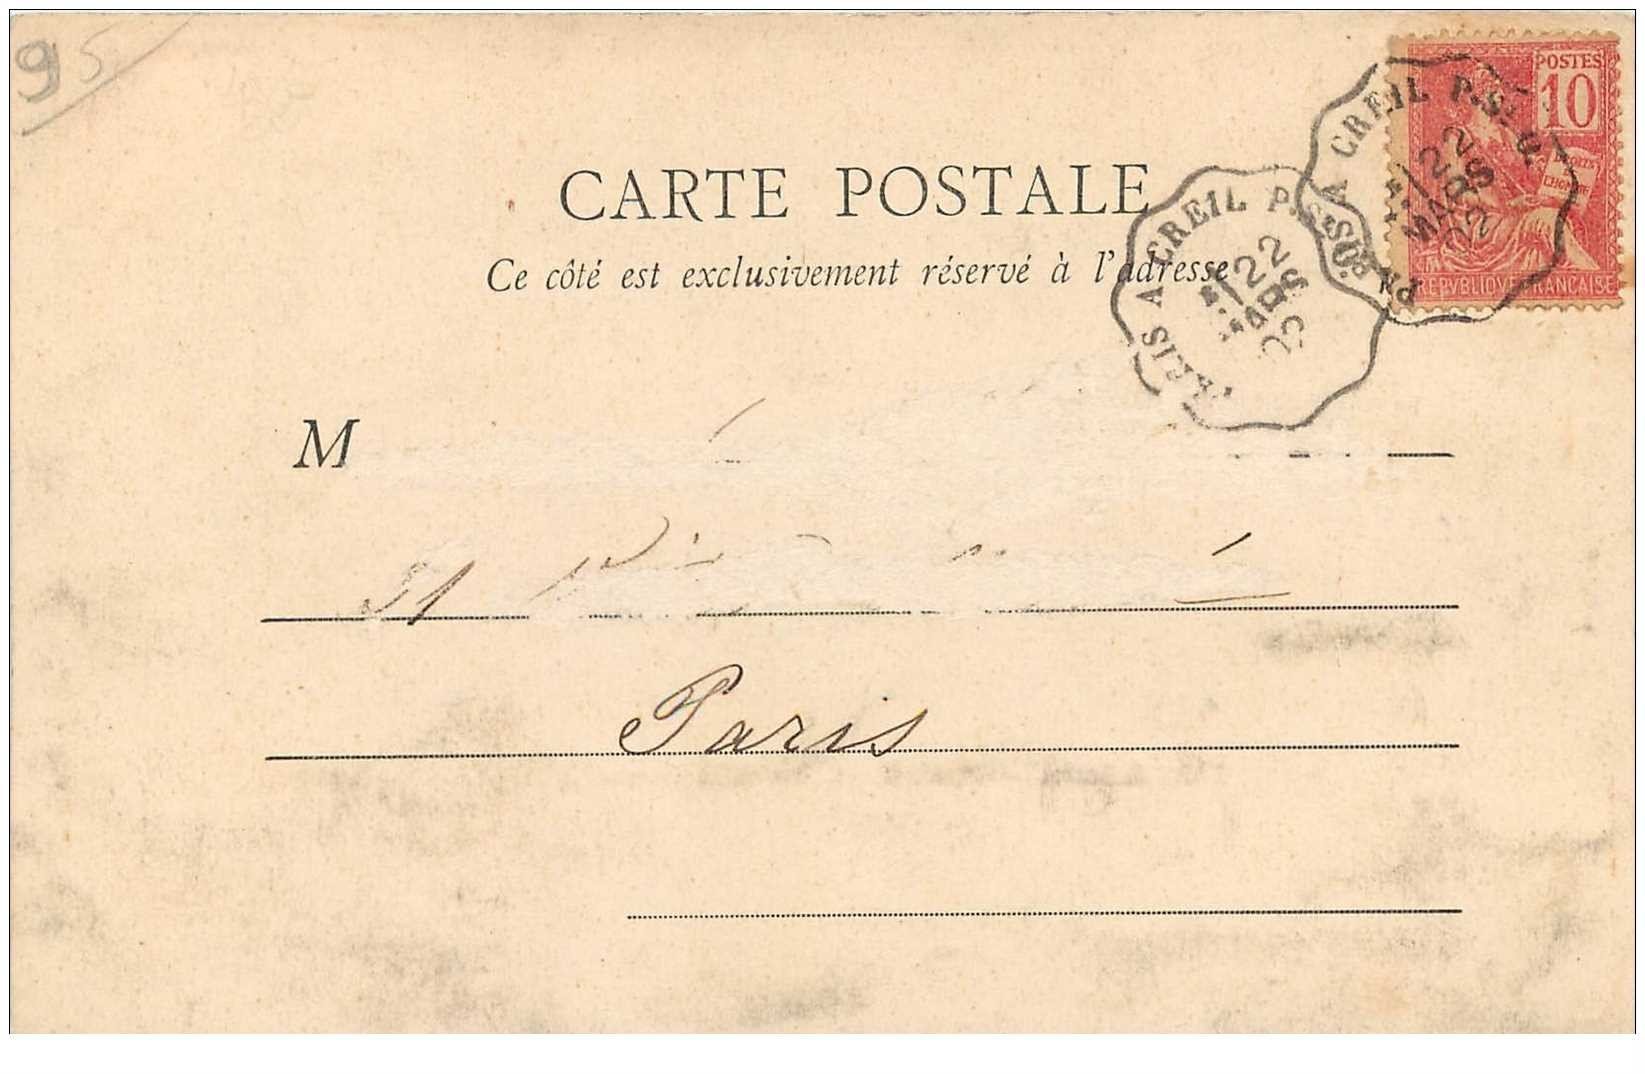 95
POSTES
10
DROITS
DE
L'HOMME
REPVBLIQVE FRANÇAISE
CARTE POSTALE
Ce côté est exclusivement réservé à l'adresse
A CREIL
22
MARS
PARIS A CREIL
22
MARS
M
Paris